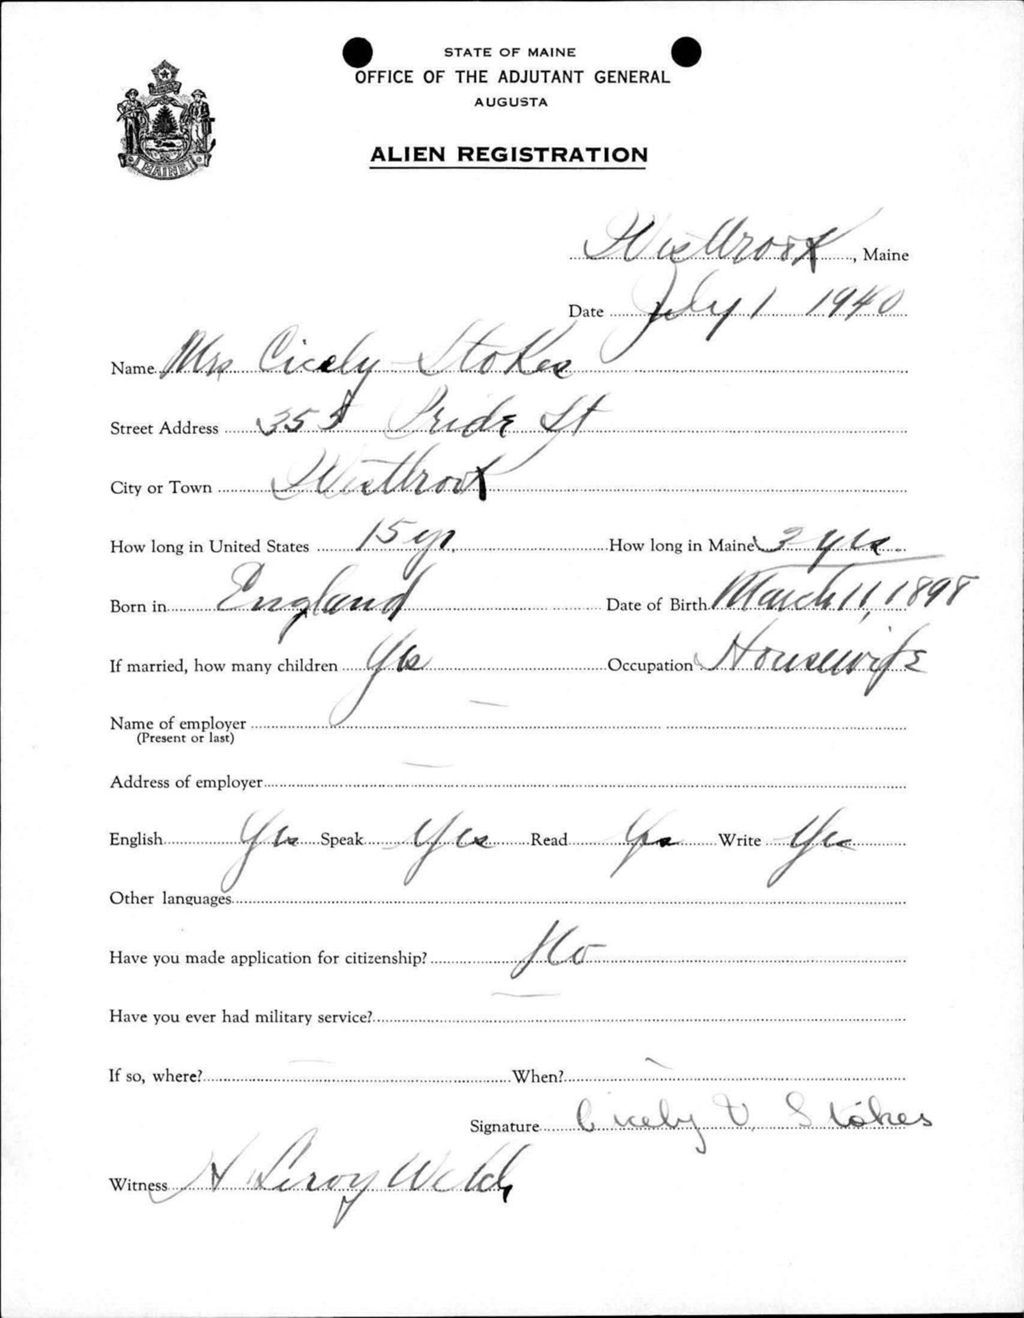 STATE OF MAINE
OFFICE OF THE ADJUTANT GENERAL
AUGUSTA
ALIEN REGISTRATION
MAINE
Westbrook, Maine
Date July 1 1940
Name Mrs Cicely Stokes
Street Address 355 Pride St
City or Town Westbrook
How long in United States 15 yr. How long in Maine 3 yrs.
Born in England Date of Birth March 11, 1898
If married, how many children Yes Occupation Housewife
Name of employer —
(Present or last)
Address of employer —
English Yes Speak Yes Read Yes Write Yes
Other languages
Have you made application for citizenship? No
Have you ever had military service? —
If so, where? — When? —
Signature Cicely V. Stokes
Witness H Leroy Welch